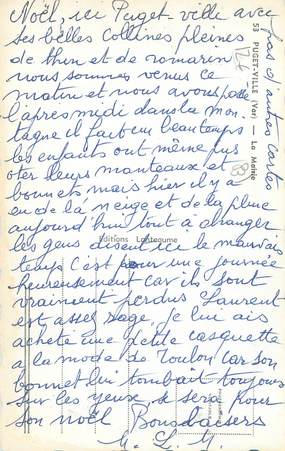 Noël, ici Puget-ville avec
ses belles collines pleines
de thin et de romarin
nous sommes venus ce
matin et nous avons passé
l'après midi dans la mon
tagne il fait bien beau temps
les enfants ont même pus
oter leurs manteaux et
bonnets mais hier il y a
eu de la neige et de la pluie
aujourd'hui tout à changer
les gens disent ici le mauvais
temps c'est pour une journée
heureusement car ils sont
vraiment perdus Laurent
est assez sage, je lui ais
acheté une petite casquette
à la mode de Toulon car son
bonnet lui tombait toujours
sur les yeux, se sera pour
son noël Bons baisers
pas d'autres cartes
53 PUGET-VILLE (Var) — La Mairie
Editions Lanteaume